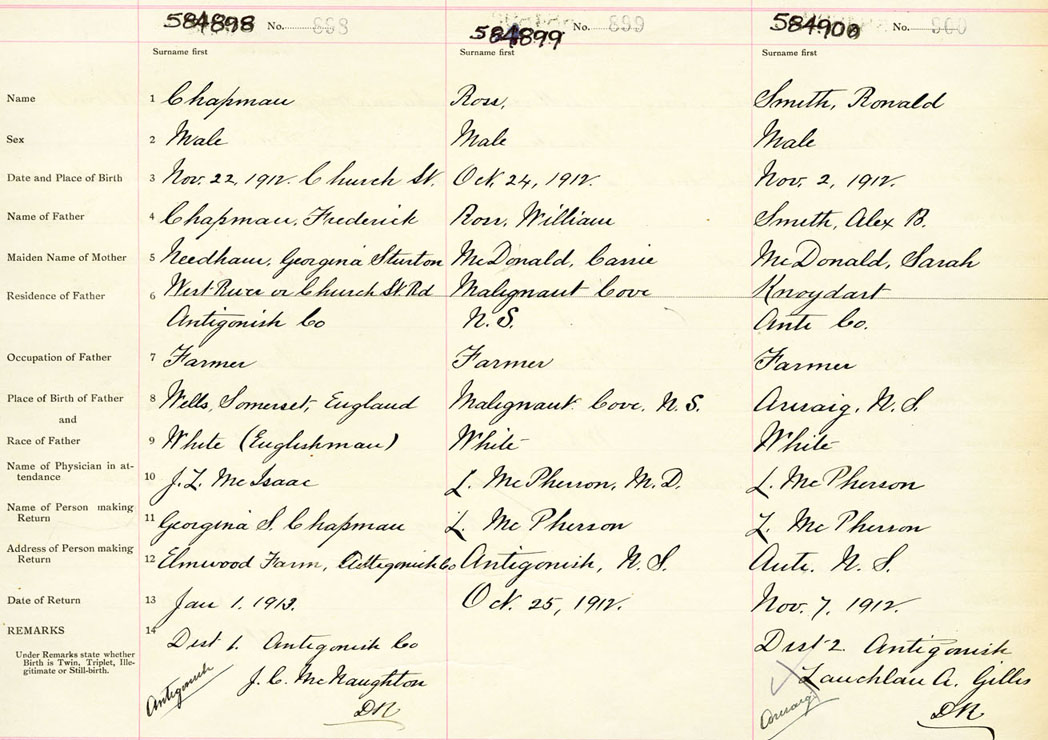 584898 No. 898 584899 No. 899 584900 No. 900
Surname first Surname first Surname first
Name 1 Chapman Ross, Smith, Ronald
Sex 2 Male Male Male
Date and Place of Birth 3 Nov. 22, 1912. Church St. Oct. 24, 1912. Nov. 2, 1912.
Name of Father 4 Chapman, Frederick Ross, William Smith, Alex B.
Maiden Name of Mother 5 Needham, Georgina Sturton McDonald, Cassie McDonald, Sarah
Residence of Father 6 West River or Church St. Rd Malignant Cove Knoydart
Antigonish Co N.S. Anti Co.
Occupation of Father 7 Farmer Farmer Farmer
Place of Birth of Father 8 Wells, Somerset, England Malignant Cove, N.S. Arisaig, N.S.
and
Race of Father 9 White (Englishman) White White
Name of Physician in at-
tendance 10 J.L. McIsaac L. McPherson, M.D. L. McPherson
Name of Person making
Return 11 Georgina S. Chapman L. McPherson L. McPherson
Address of Person making
Return 12 Elmwood Farm, Antigonish Co Antigonish, N.S. Anti. N.S.
Date of Return 13 Jan 1. 1913. Oct. 25, 1912. Nov. 7, 1912.
REMARKS 14 Dist 1. Antigonish Co Dist 2 Antigonish
Under Remarks state whether
Birth is Twin, Triplet, Ille-
gitimate or Still-birth.
Antigonish J.C. McNaughton Lauchlan A. Gillis
DR Arisaig DR